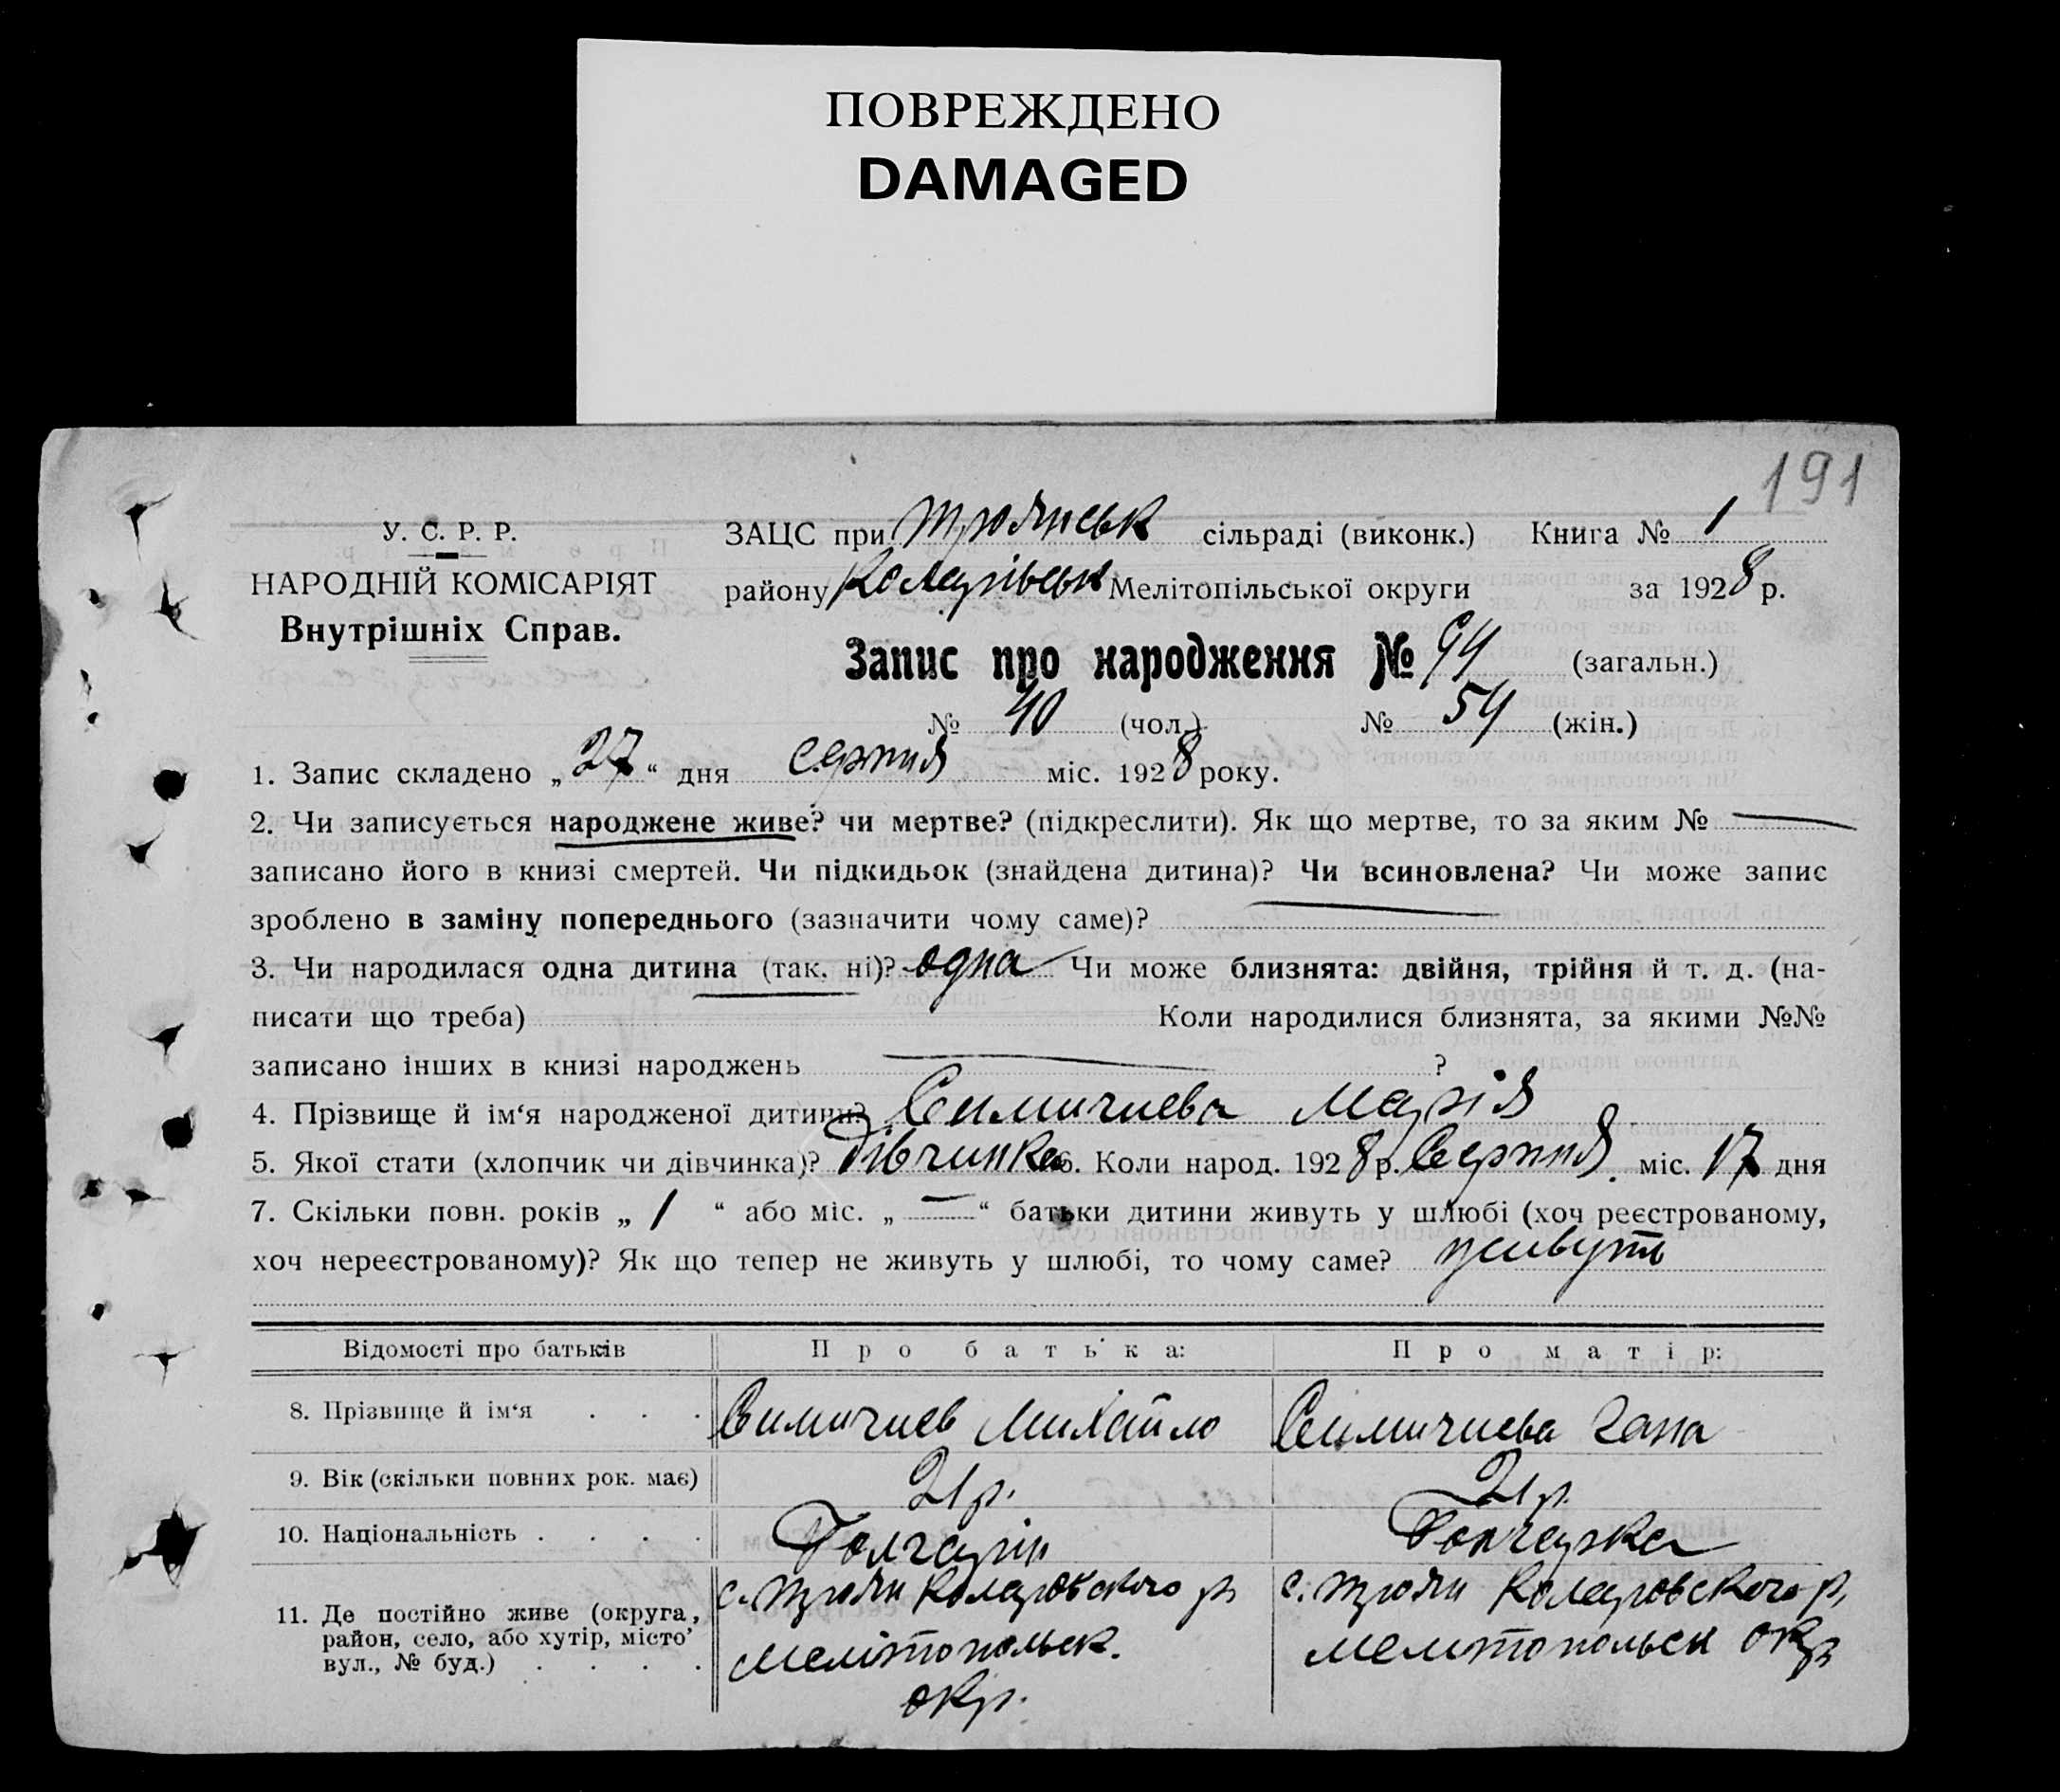 ПОВРЕЖДЕНО
DAMAGED
191
У. С. Р. Р.
НАРОДНІЙ КОМІСАРІЯТ
Внутрішніх Справ.
ЗАЦС при Троянськ сільраді (виконк.) Книга № 1
району Коларівськ Мелітопільської округи за 1928 р.
Запис про народження № 94 (загальн.)
№ 40 (чол.) № 54 (жін.)
1. Запис складено „ 27 “ дня серпня міс. 1928 року.
2. Чи записується народжене живе? чи мертве? (підкреслити). Як що мертве, то за яким № —
записано його в книзі смертей. Чи підкидьок (знайдена дитина)? Чи всиновлена? Чи може запис
зроблено в заміну попереднього (зазначити чому саме)?
3. Чи народилася одна дитина (так, ні)? одна Чи може близнята: двійня, трійня й т. д. (на-
писати що треба) Коли народилися близнята, за якими №№
записано інших в книзі народжень — ?
4. Прізвище й ім‘я народженої дитини? Симичиева Марія
5. Якої стати (хлопчик чи дівчинка)? дівчинка 6. Коли народ. 1928 р. Серпня міс. 17 дня
7. Скільки повн. років „ 1 “ або міс. „ — “ батьки дитини живуть у шлюбі (хоч реєстрованому,
хоч нереєстрованому)? Як що тепер не живуть у шлюбі, то чому саме? живуть
Відомості про батьків Про батька: Про матір:
8. Прізвище й ім‘я . . . Симичиев Михайло Симичиева Гана
9. Вік (скільки повних рок. має) 21 р. 21 р.
10. Національність . . . . Болгарін Болгарка
11. Де постійно живе (округа, район, село, або хутір, місто, вул., № буд.) . . . .
с. Трояни Коларовского р,
Мелітопольск.
окр.
с. Трояни Коларовского р,
Мелитопольск окр